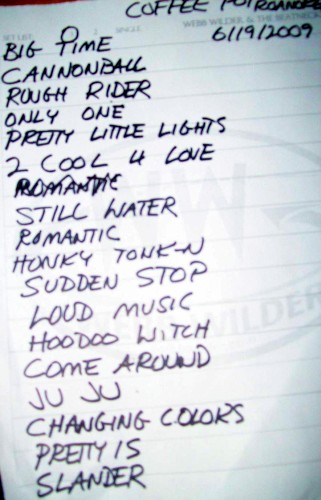 COFFEE POT ROANOKE
WEBB WILDER & THE BEATNECKS
SET LIST
6/19/2009
BIG TIME
CANNONBALL
ROUGH RIDER
ONLY ONE
PRETTY LITTLE LIGHTS
2 COOL 4 LOVE
ROMANTIC
STILL WATER
ROMANTIC
HONKY TONK-N
SUDDEN STOP
LOUD MUSIC
HOODOO WITCH
COME AROUND
JU JU
CHANGING COLORS
PRETTY IS
SLANDER
WW
WEBB WILDER